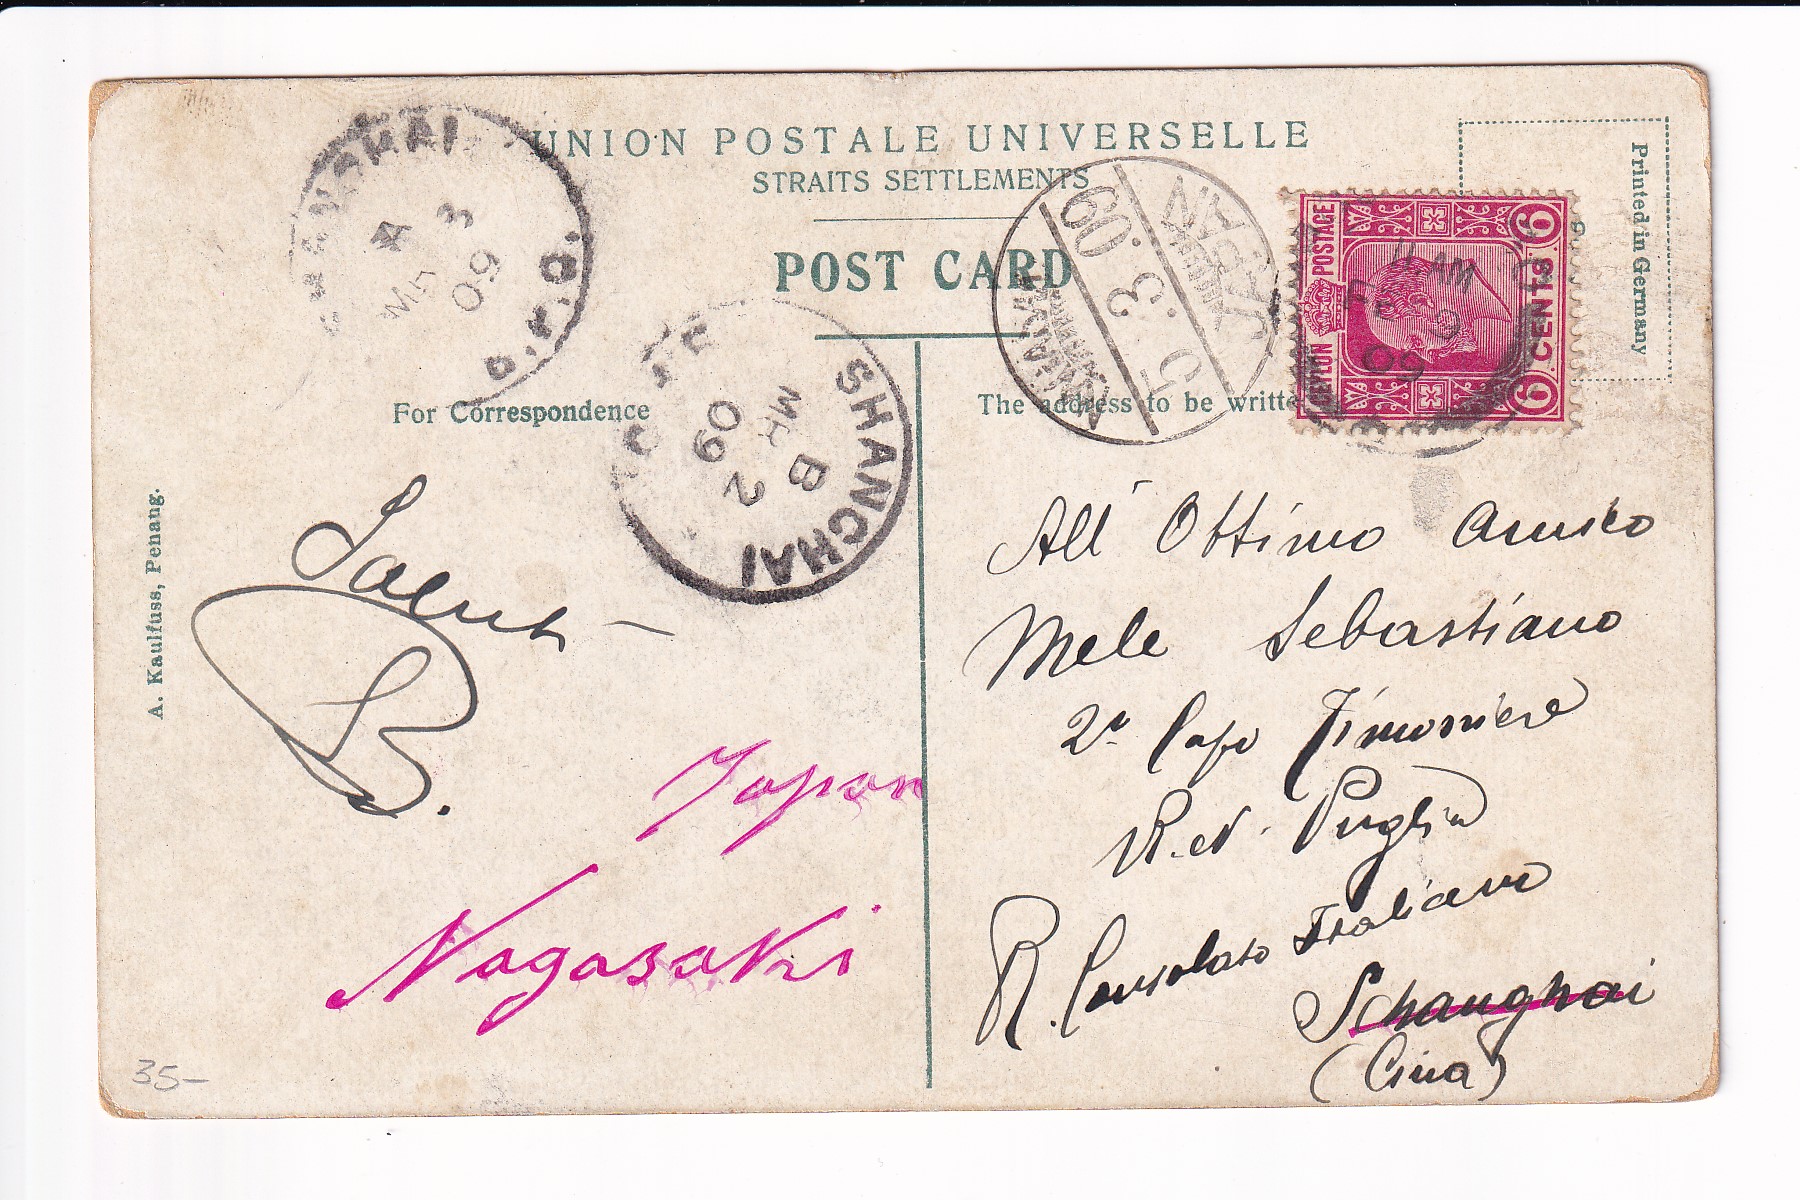 UNION POSTALE UNIVERSELLE
STRAITS SETTLEMENTS
POST CARD
Printed in Germany
CEYLON POSTAGE
6 CENTS 6
11 AM
FE 9
09
SHANGHAI
A
MR 3
09
SHANGHAI
B
MR 2
09
NAGASAKI
5.3.09
JAPAN
For Correspondence
The address to be writte
A. Kaulfuss, Penang.
Saluti
Japan
Nagasaki
All' Ottimo Amico
Mele Sebastiano
2º Capo Timoniere
R. N. Puglia
R. Consolato Italiano
Schanghai
(Cina)
35-